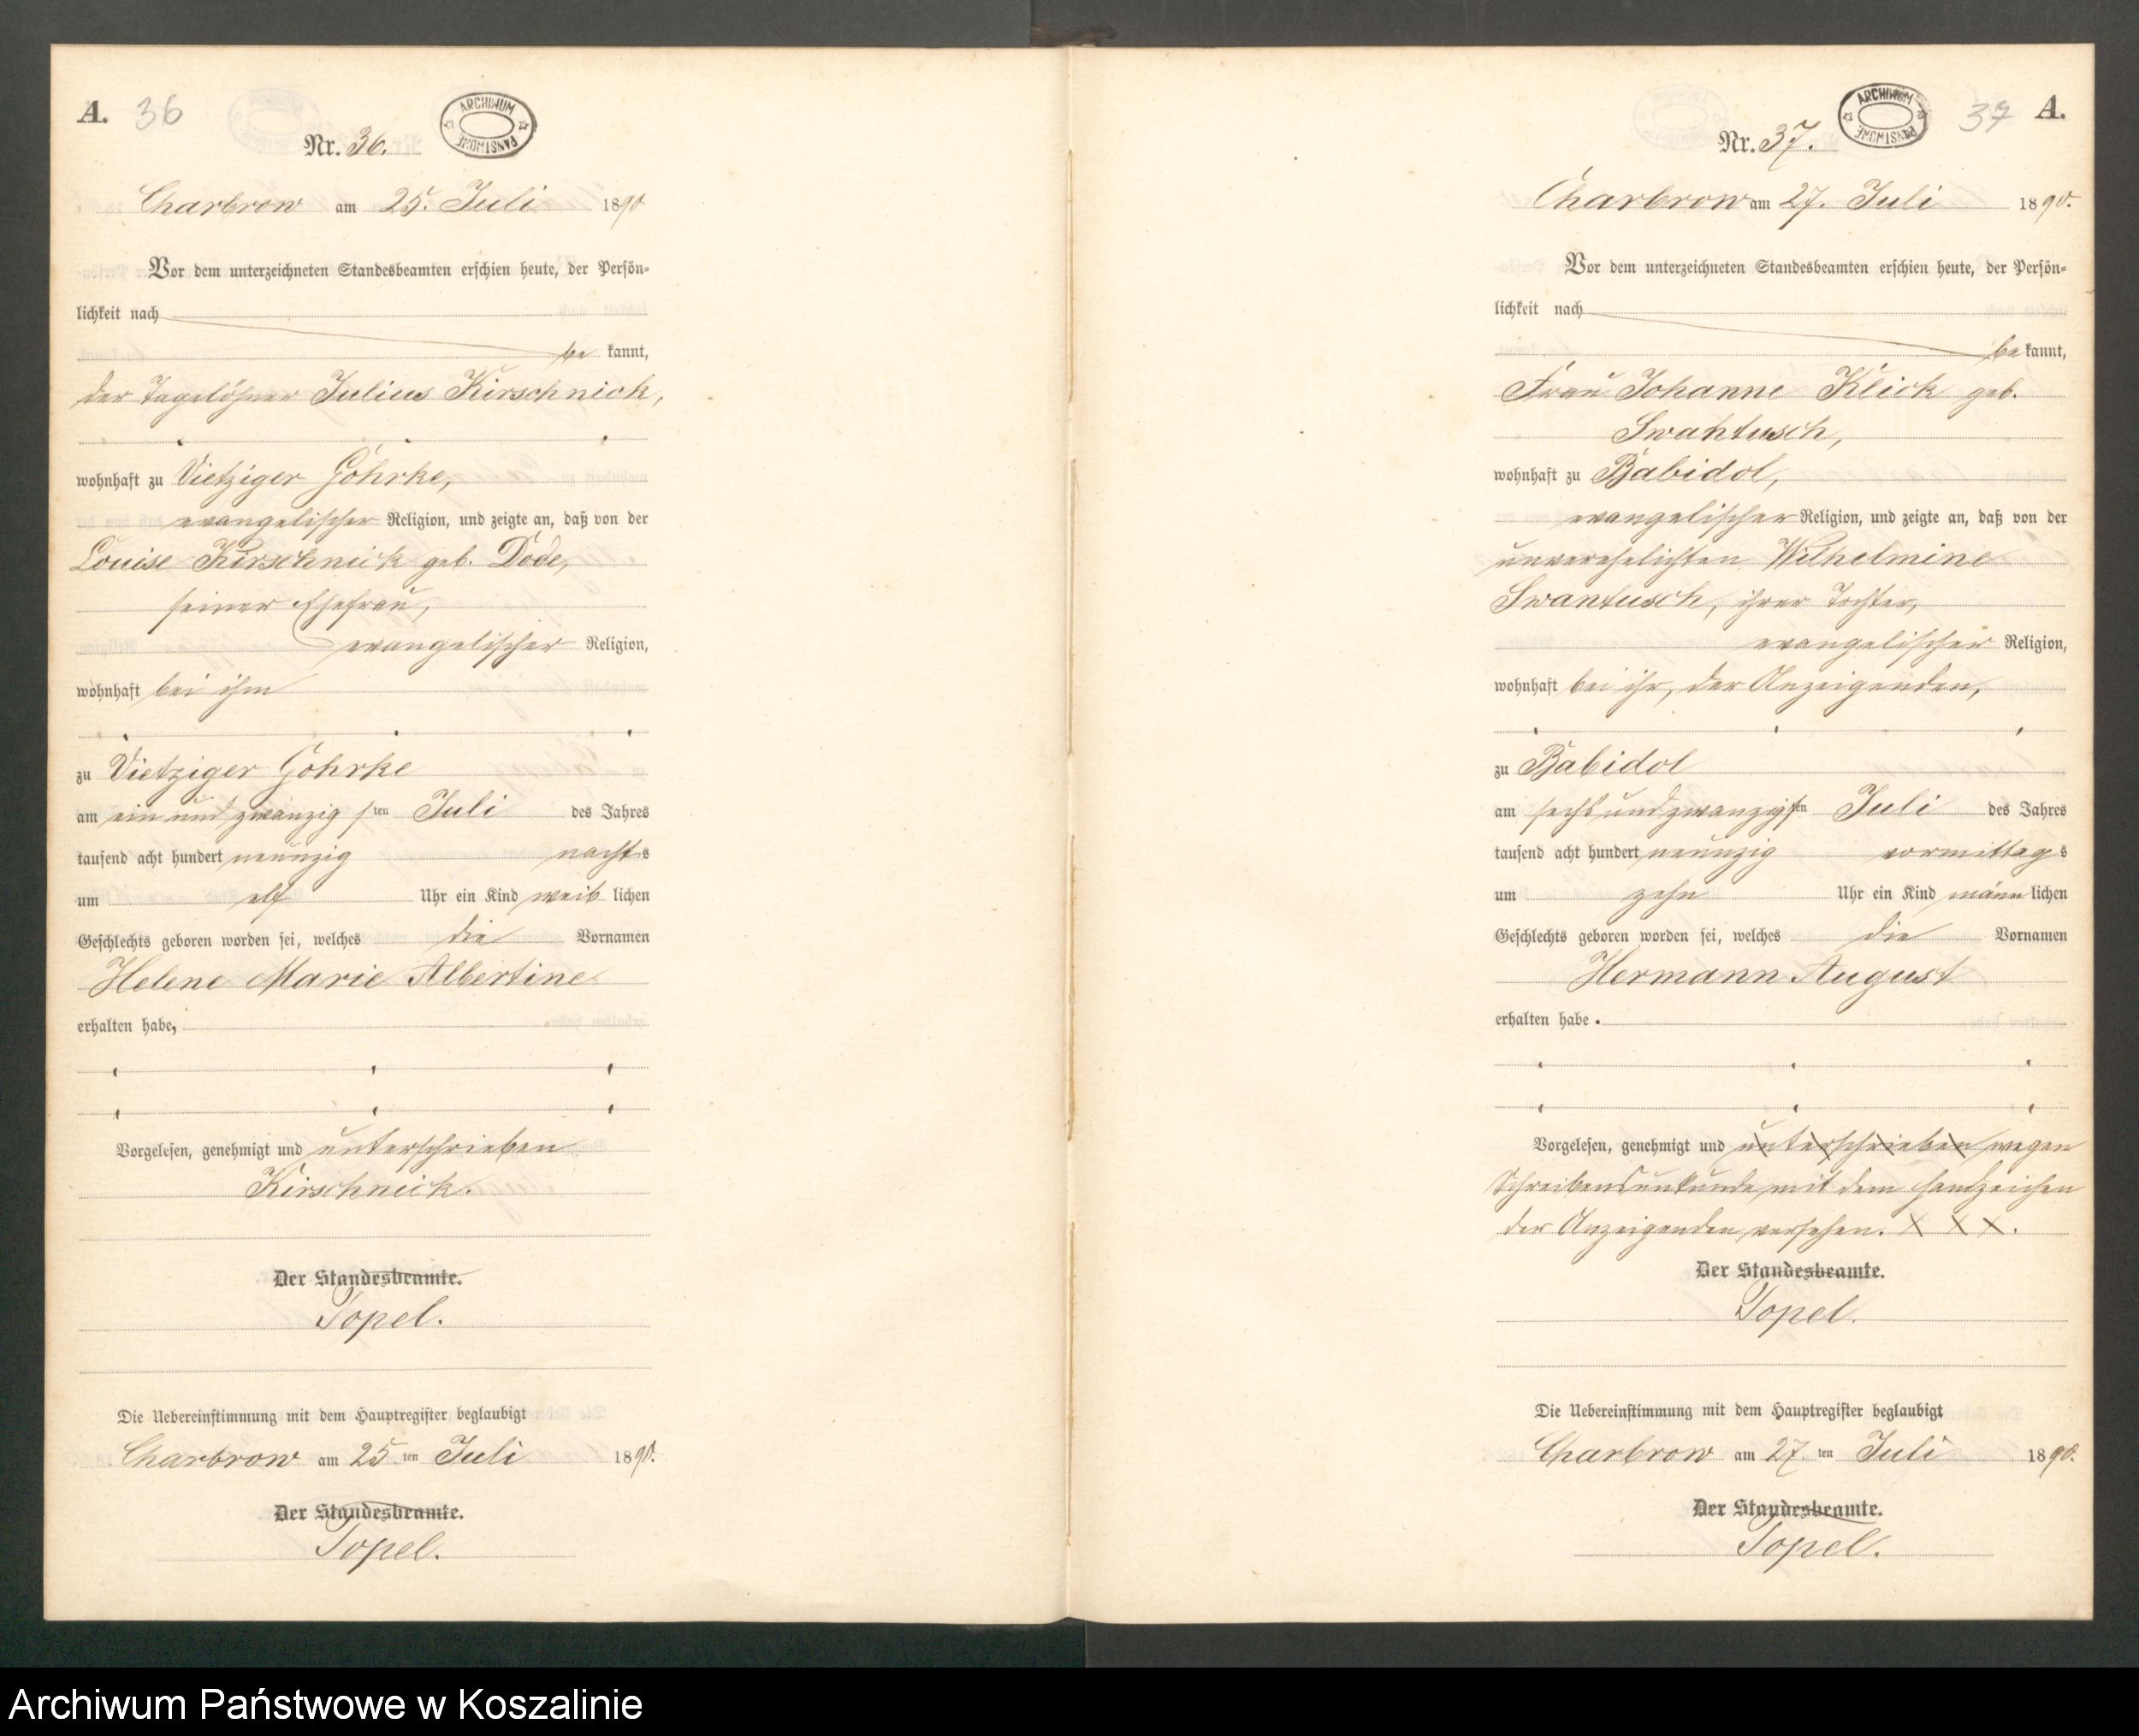 A. 36
ARCHIWUM PAŃSTWOWE
Nr. 36.
Charbrow am 25. Juli 1890
Vor dem unterzeichneten Standesbeamten erschien heute, der Persön-
lichkeit nach
be kannt,
der Tagelöhner Julius Kirschnick,
wohnhaft zu Vietziger Göhrke,
evangelischer Religion, und zeigte an, daß von der
Louise Kirschnick geb. Dode,
seiner Ehefrau,
evangelischer Religion,
wohnhaft bei ihm
zu Vietziger Göhrke
am ein und zwanzigsten Juli des Jahres
tausend acht hundert neunzig nachts
um elf Uhr ein Kind weiblichen
Geschlechts geboren worden sei, welches die Vornamen
Helene Marie Albertine
erhalten habe,
Vorgelesen, genehmigt und unterschrieben
Kirschnick.
Der Standesbeamte.
Topel.
Die Uebereinstimmung mit dem Hauptregister beglaubigt
Charbrow am 25 ten Juli 1890.
Der Standesbeamte.
Topel.
37 A.
ARCHIWUM PAŃSTWOWE
Nr. 37.
Charbrow am 27. Juli 1890.
Vor dem unterzeichneten Standesbeamten erschien heute, der Persön-
lichkeit nach
be kannt,
Frau Johanne Klick geb.
Swantusch,
wohnhaft zu Babidol,
evangelischer Religion, und zeigte an, daß von der
unverehelichten Wilhelmine
Swantusch, ihrer Tochter,
evangelischer Religion,
wohnhaft bei ihr, der Anzeigenden,
zu Babidol
am sechs und zwanzigsten Juli des Jahres
tausend acht hundert neunzig vormittags
um zehn Uhr ein Kind männlichen
Geschlechts geboren worden sei, welches die Vornamen
Hermann August
erhalten habe.
Vorgelesen, genehmigt und unterschrieben wegen
Schreibensunkunde mit dem Handzeichen
der Anzeigenden versehen. X X X.
Der Standesbeamte.
Topel.
Die Uebereinstimmung mit dem Hauptregister beglaubigt
Charbrow am 27. ten Juli 1890.
Der Standesbeamte.
Topel.
Archiwum Państwowe w Koszalinie